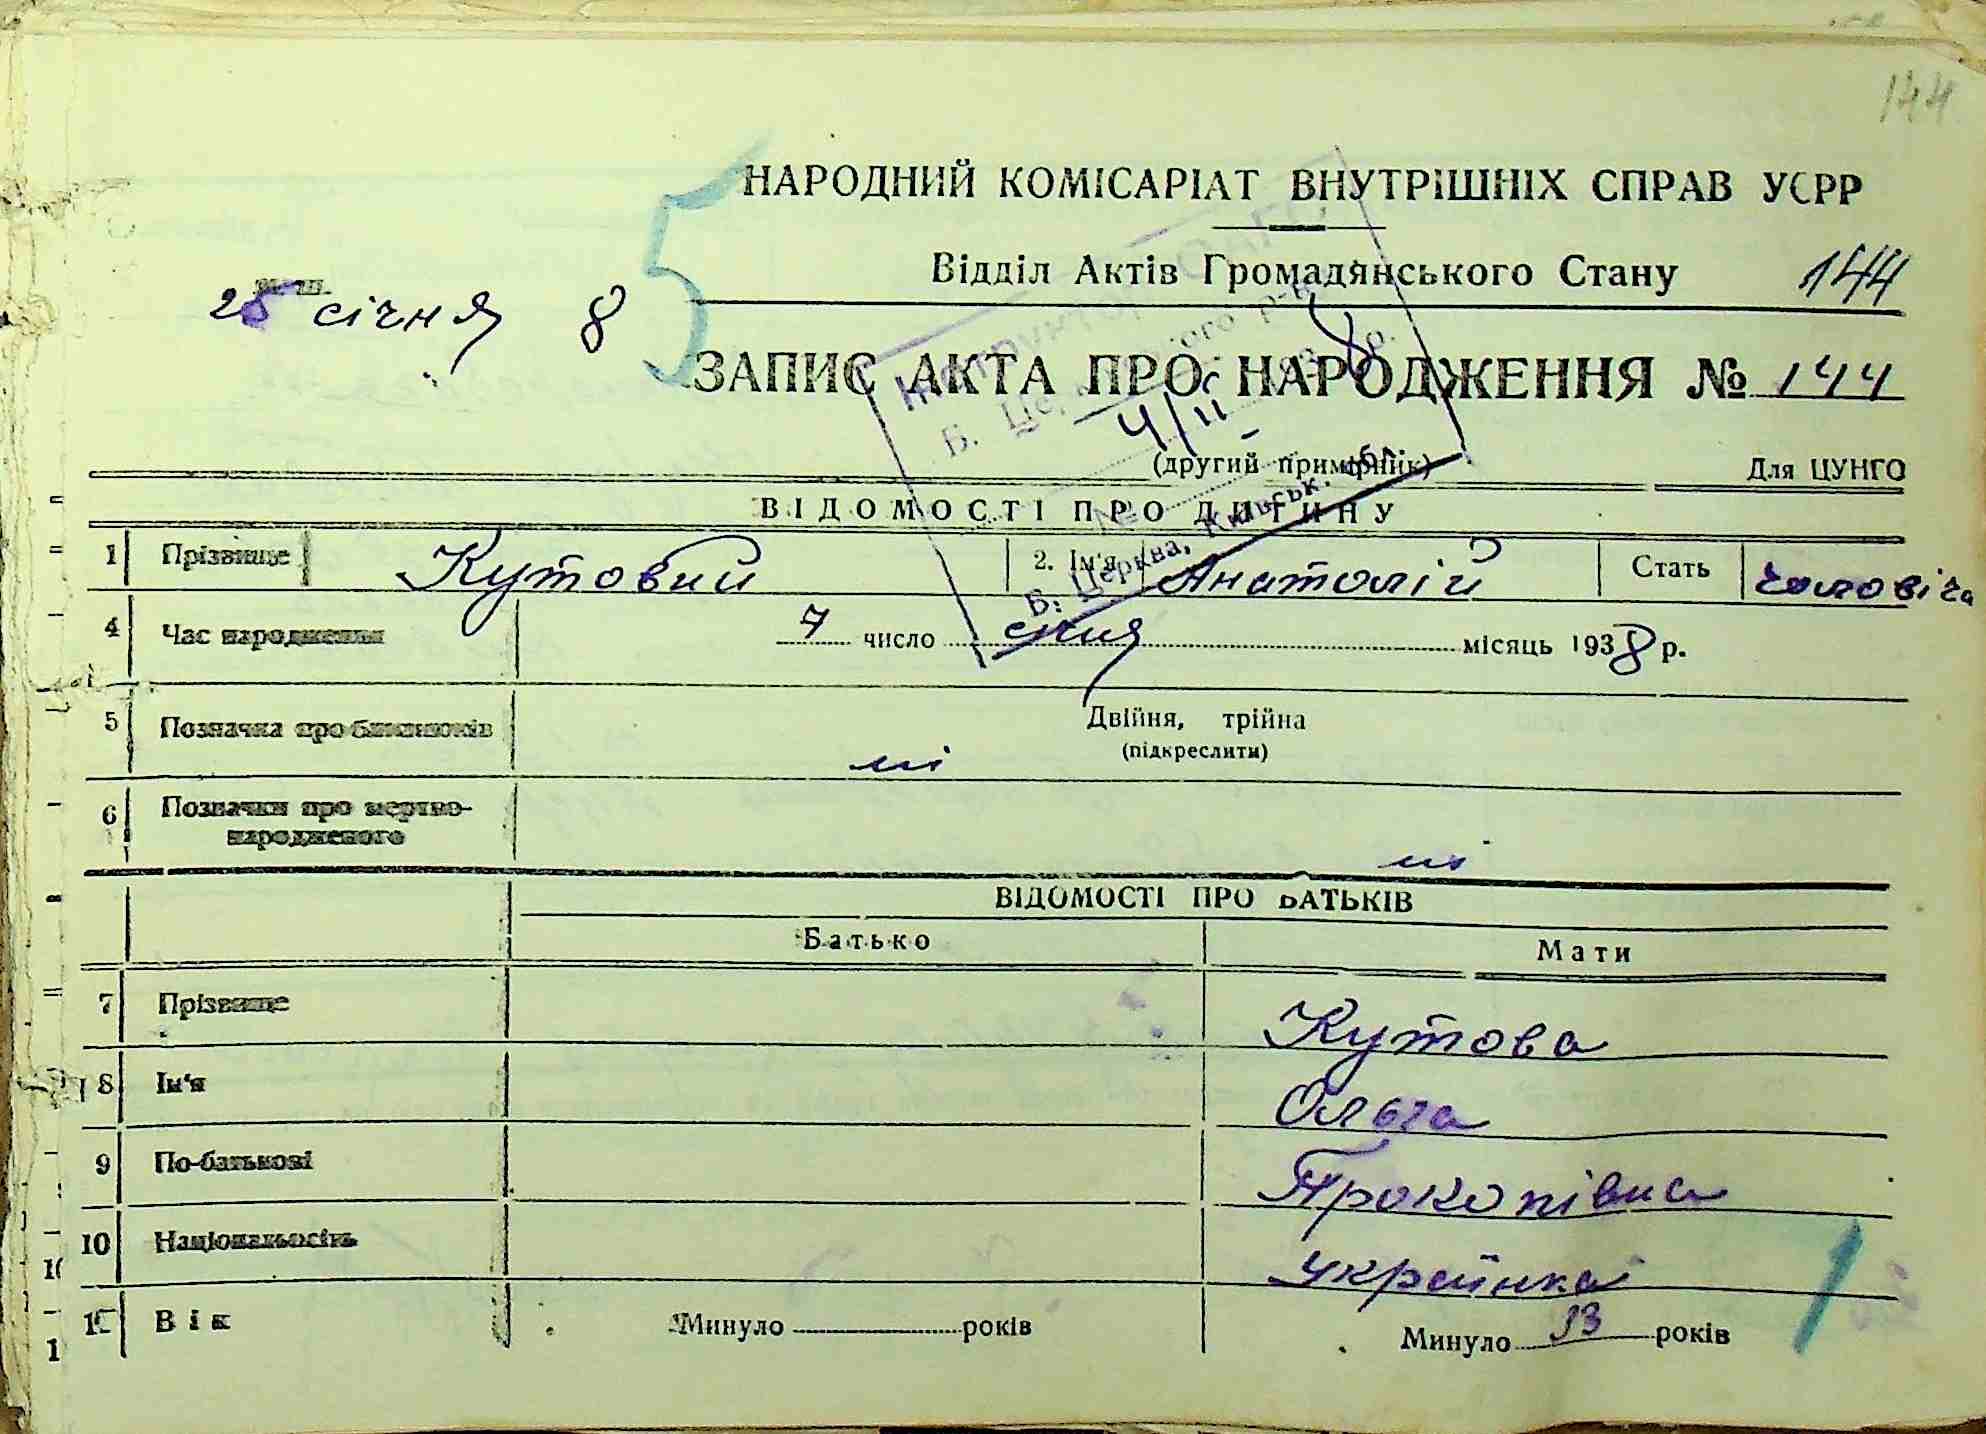 144
НАРОДНИЙ КОМІСАРІАТ ВНУТРІШНІХ СПРАВ УСРР
Відділ Актів Громадянського Стану 144
25 січня 8
5
ЗАПИС АКТА ПРО НАРОДЖЕННЯ № 144
Інструктор
Б. Церківського р-ну
4/II 1938 р.
№
Б. Церква, Київськ. обл.
(другий примірник) Для ЦУНГО
ВІДОМОСТІ ПРО ДИТИНУ
1 Прізвище Кутовий 2. Ім'я Анатолій Стать чоловіча
4 Час народження 7 число січня місяць 1938 р.
5 Позначка про близнюків Двійня, трійна
(підкреслити)
ні
6 Позначки про мертво-
народженого ні
ВІДОМОСТІ ПРО БАТЬКІВ
Батько Мати
7 Прізвище Кутова
8 Ім'я Ольга
9 По-батькові Прокопівна
10 Національність українка
1
Вік Минуло років Минуло років